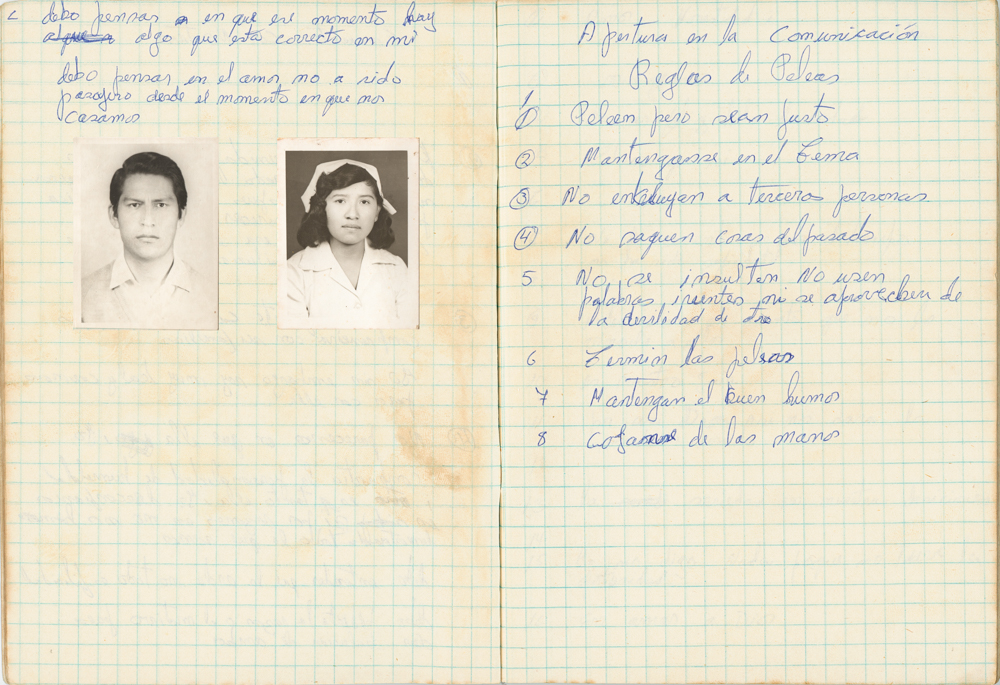 L debo pensar en que ese momento hay
algo que esta correcto en mi
debo pensar en el amor no a sido
pasajero desde el momento en que nos
casamos
Apertura en la Comunicación
Reglas de Peleas
1 Peleen pero sean justo
2 Mantenganse en el tema
3 No enkluyan a terceros personas
4 No saquen cosas del pasado
5 No, se insulten No usen
palabras irientes, ni se aprovechen de
la devilidad de otro
6 Termin las peleas
7 Mantengan el buen humos
8 Cojanse de las manos